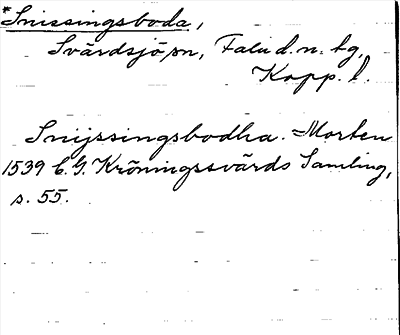 *Snissingsboda,
Svärdsjö sn, Falu d. n. tg,
Kopp. l.
Snijssingsbodha. =Morten
1539 C. G. Kröningssvärds Samling,
s. 55.